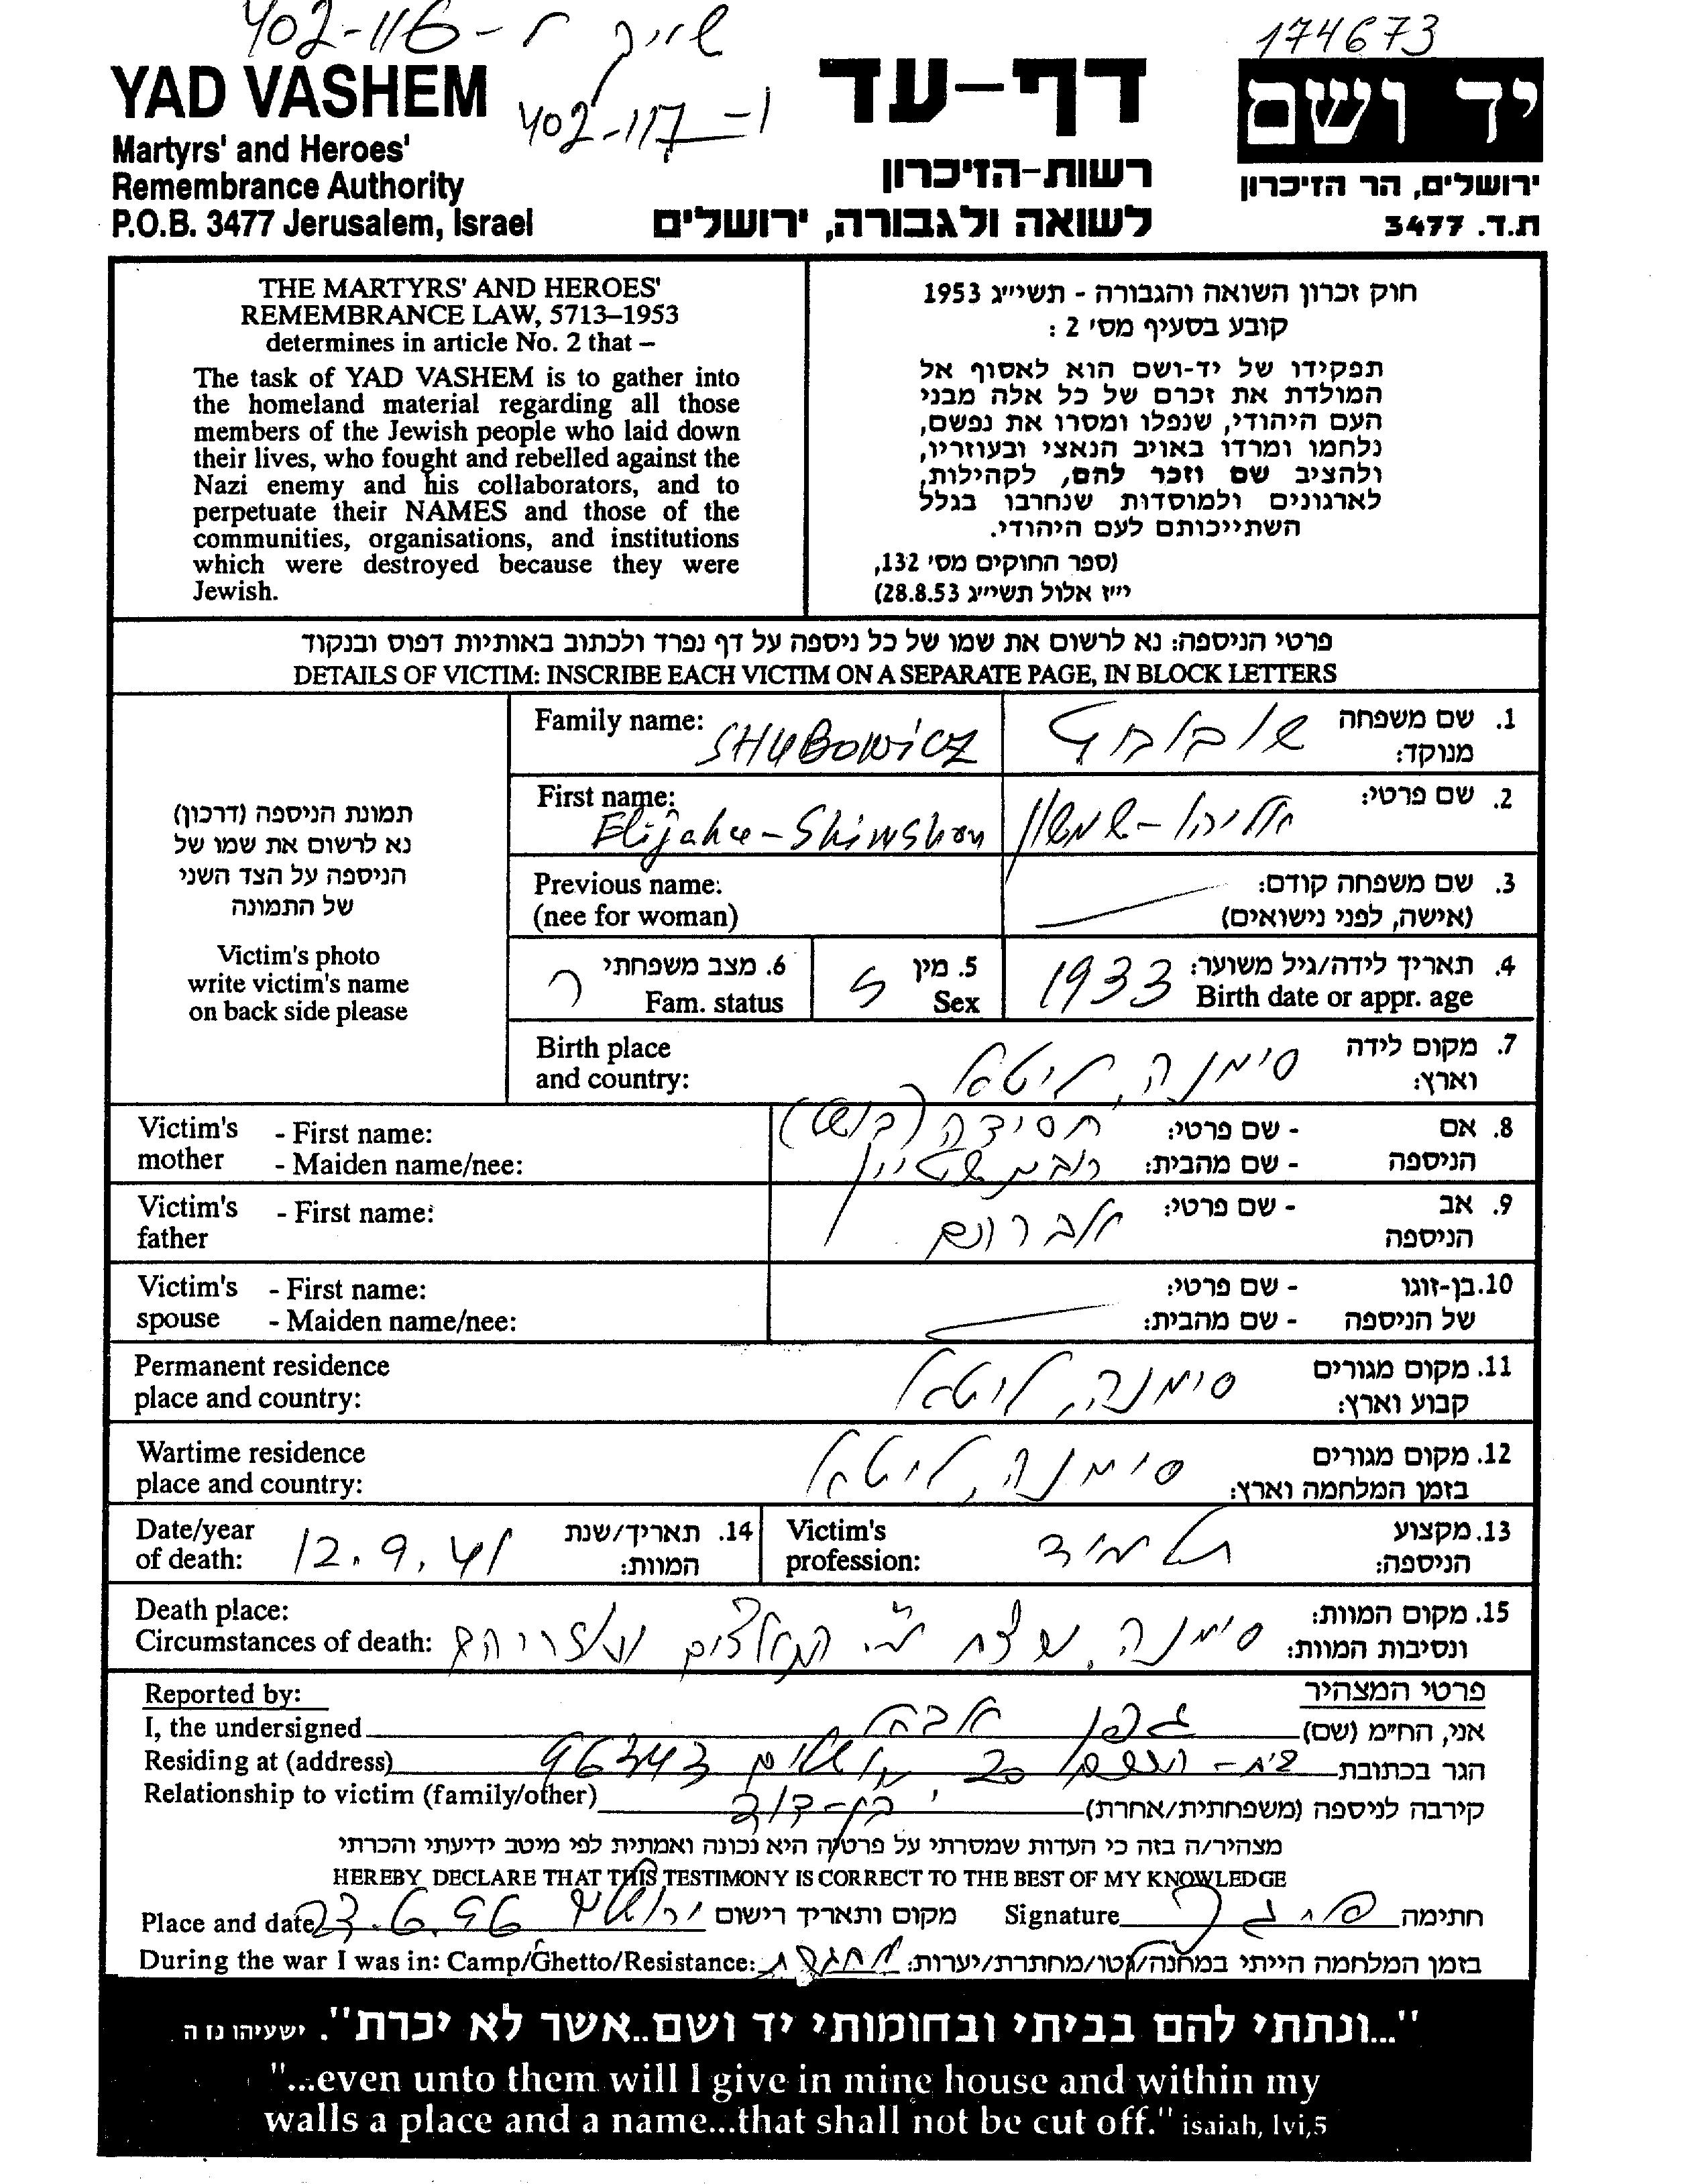 402-116-
שוייך
174673
402-117
YAD VASHEM
Martyrs' and Heroes'
Remembrance Authority
P.O.B. 3477 Jerusalem, Israel
דף-עד
רשות-הזיכרון
לשואה ולגבורה, ירושלים
יד ושם
ירושלים, הר הזיכרון
ת.ד. 3477
THE MARTYRS' AND HEROES'
REMEMBRANCE LAW, 5713–1953
determines in article No. 2 that –
The task of YAD VASHEM is to gather into
the homeland material regarding all those
members of the Jewish people who laid down
their lives, who fought and rebelled against the
Nazi enemy and his collaborators, and to
perpetuate their NAMES and those of the
communities, organisations, and institutions
which were destroyed because they were
Jewish.
חוק זכרון השואה והגבורה - תשי״ג 1953
קובע בסעיף מס׳ 2 :
תפקידו של יד-ושם הוא לאסוף אל
המולדת את זכרם של כל אלה מבני
העם היהודי, שנפלו ומסרו את נפשם,
נלחמו ומרדו באויב הנאצי ובעוזריו,
ולהציב שם וזכר להם, לקהילות,
לארגונים ולמוסדות שנחרבו בגלל
השתייכותם לעם היהודי.
(ספר החוקים מס׳ 132,
י״ז אלול תשי״ג 28.8.53)
פרטי הניספה: נא לרשום את שמו של כל ניספה על דף נפרד ולכתוב באותיות דפוס ובנקוד
DETAILS OF VICTIM: INSCRIBE EACH VICTIM ON A SEPARATE PAGE, IN BLOCK LETTERS
תמונת הניספה (דרכון)
נא לרשום את שמו של
הניספה על הצד השני
של התמונה
Victim's photo
write victim's name
on back side please
Family name: SHUBOWICZ
1. שם משפחה מנוקד: שובוביץ
First name: Elijahu-Shimshon
2. שם פרטי: אליהו-שמשון
Previous name:
(nee for woman)
3. שם משפחה קודם:
(אישה, לפני נישואים)
4. תאריך לידה/גיל משוער: 1933
Birth date or appr. age
5. מין ז
Sex
6. מצב משפחתי ר
Fam. status
Birth place
and country:
7. מקום לידה
וארץ: סימנה, ליטא
Victim's mother - First name:
- Maiden name/nee:
8. אם - שם פרטי: חסידה
הניספה - שם מהבית: רובינשטיין
Victim's father - First name:
9. אב - שם פרטי: אברהם
הניספה
Victim's spouse - First name:
- Maiden name/nee:
10. בן-זוגו - שם פרטי:
של הניספה - שם מהבית:
Permanent residence
place and country:
11. מקום מגורים
קבוע וארץ: סימנה, ליטא
Wartime residence
place and country:
12. מקום מגורים
בזמן המלחמה וארץ: סימנה, ליטא
Date/year
of death: 12.9.41
14. תאריך/שנת
המוות:
Victim's
profession:
13. מקצוע
הניספה: תלמיד
Death place:
Circumstances of death:
15. מקום המוות:
ונסיבות המוות: סימנה, נרצח ע״י הנאצים ועוזריהם
Reported by:
פרטי המצהיר
I, the undersigned
אני, הח״מ (שם) גפן
Residing at (address)
הגר בכתובת 20 ירושלים 96343
Relationship to victim (family/other)
קירבה לניספה (משפחתית/אחרת) בן-דוד
מצהיר/ה בזה כי העדות שמסרתי על פרטיה היא נכונה ואמתית לפי מיטב ידיעתי והכרתי
HEREBY DECLARE THAT THIS TESTIMONY IS CORRECT TO THE BEST OF MY KNOWLEDGE
Place and date 23.6.96 ירושלים מקום ותאריך רישום
Signature חתימה
During the war I was in: Camp/Ghetto/Resistance:
בזמן המלחמה הייתי במחנה/גטו/מחתרת/יערות:
"...ונתתי להם בביתי ובחומותי יד ושם..אשר לא יכרת". ישעיהו נו ה
"...even unto them will I give in mine house and within my
walls a place and a name...that shall not be cut off." isaiah, lvi,5